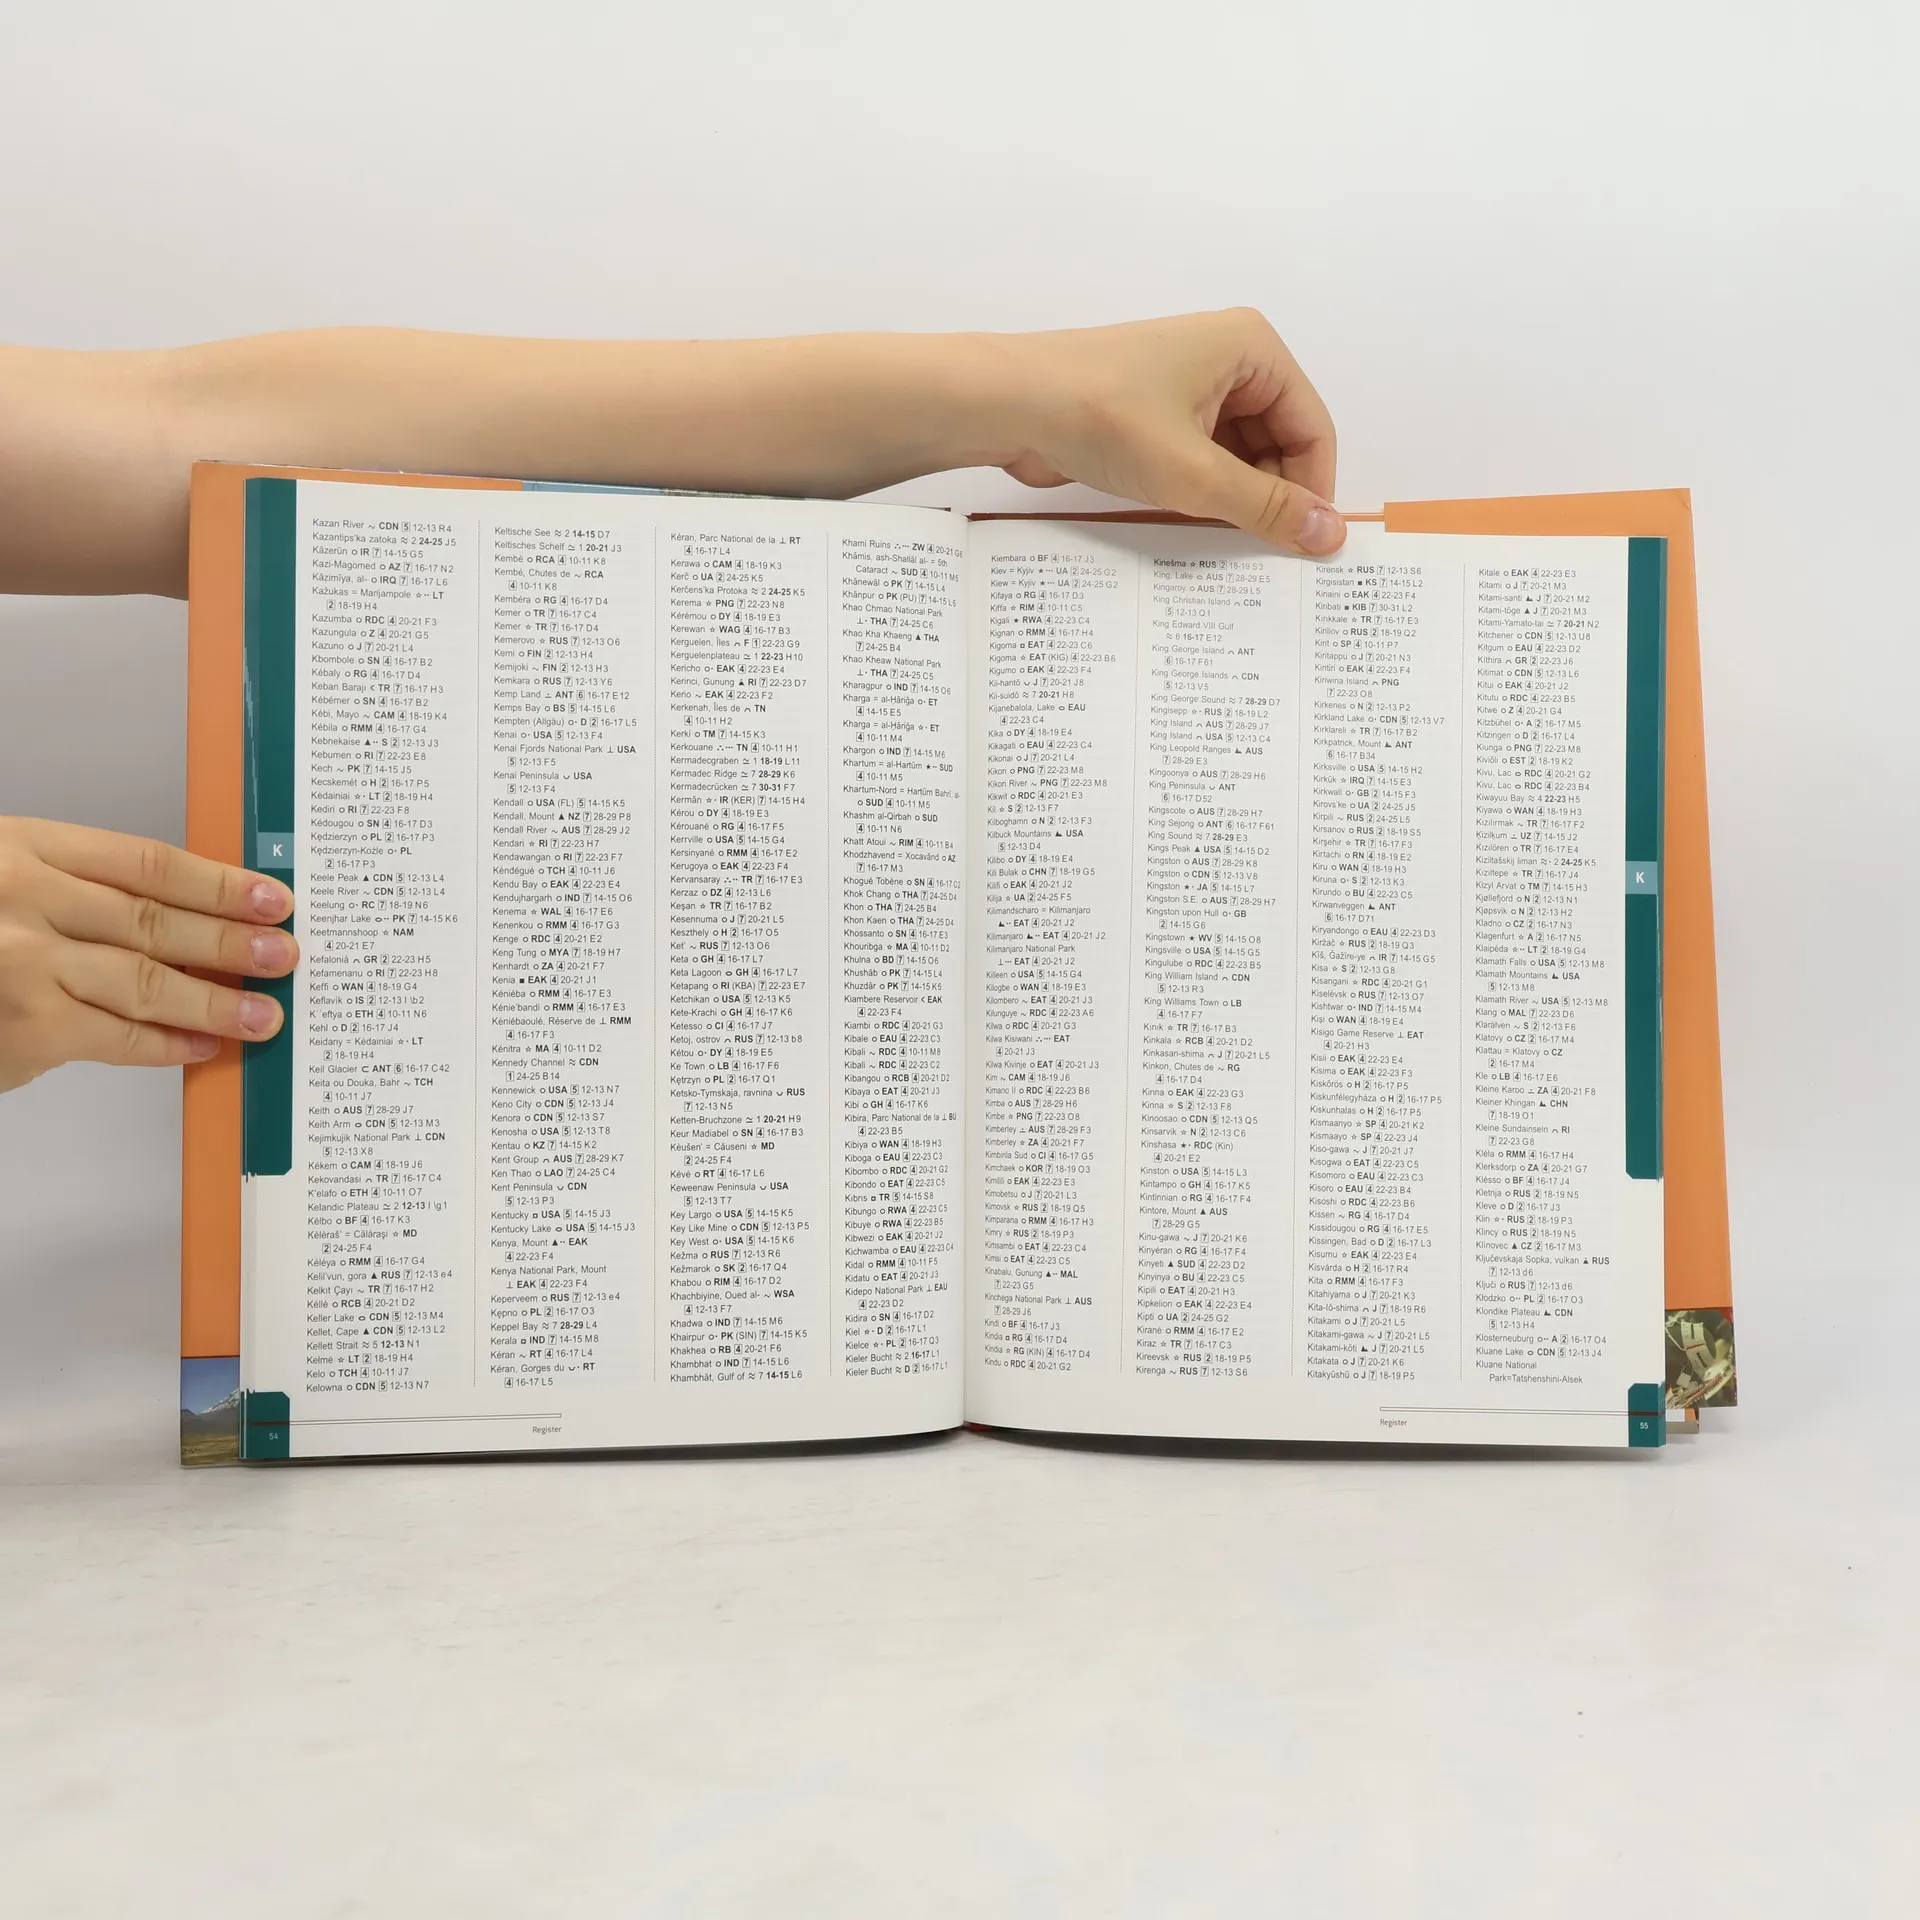 Kazan River ~ CDN 5 12-13 R4
Kazantips'ka zatoka ≈ 2 24-25 J5
Kāzerūn o IR 7 14-15 G5
Kazi-Magomed o AZ 7 16-17 N2
Kāzimīya, al- o IRQ 7 16-17 L6
Kažukas = Marijampole ☆·· LT
2 18-19 H4
Kazumba o RDC 4 20-21 F3
Kazungula o Z 4 20-21 G5
Kazuno o J 7 20-21 L4
Kbombole o SN 4 16-17 B2
Kébaly o RG 4 16-17 D4
Keban Barajı < TR 7 16-17 H3
Kébémer o SN 4 16-17 B2
Kébi, Mayo ~ CAM 4 18-19 K4
Kébila o RMM 4 16-17 G4
Kebnekaise ▲·· S 2 12-13 J3
Kebumen o RI 7 22-23 E8
Kech ~ PK 7 14-15 J5
Kecskemét o H 2 16-17 P5
Kėdainiai ☆· LT 2 18-19 H4
Kediri o RI 7 22-23 F8
Kédougou o SN 4 16-17 D3
Kędzierzyn o PL 2 16-17 P3
Kędzierzyn-Koźle o· PL
2 16-17 P3
Keele Peak ▲ CDN 5 12-13 L4
Keele River ~ CDN 5 12-13 L4
Keelung o· RC 7 18-19 N6
Keenjhar Lake o·· PK 7 14-15 K6
Keetmannshoop ☆ NAM
4 20-21 E7
Kefaloniá ⌢ GR 2 22-23 H5
Kefamenanu o RI 7 22-23 H8
Keffi o WAN 4 18-19 G4
Keflavík o IS 2 12-13 l \b2
K´´eftya o ETH 4 10-11 N6
Kehl o D 2 16-17 J4
Keidany = Kėdainiai ☆· LT
2 18-19 H4
Keil Glacier ⊂ ANT 6 16-17 C42
Keita ou Douka, Bahr ~ TCH
4 10-11 J7
Keith o AUS 7 28-29 J7
Keith Arm o CDN 5 12-13 M3
Kejimkujik National Park ⊥ CDN
5 12-13 X8
Kékem o CAM 4 18-19 J6
Kekovandasi ⌢ TR 7 16-17 C4
K'elafo o ETH 4 10-11 O7
Kelandic Plateau ≃ 2 12-13 l \g1
Kélbo o BF 4 16-17 K3
Kèlèraš' = Călăraşi ☆ MD
2 24-25 F4
Kéléya o RMM 4 16-17 G4
Kelil'vun, gora ▲ RUS 7 12-13 e4
Kelkit Çayı ~ TR 7 16-17 H2
Kéllé o RCB 4 20-21 D2
Keller Lake o CDN 5 12-13 M4
Kellet, Cape ▲ CDN 5 12-13 L2
Kellett Strait ≈ 5 12-13 N1
Kelmė ☆ LT 2 18-19 H4
Kelo o TCH 4 10-11 J7
Kelowna o CDN 5 12-13 N7
Keltische See ≈ 2 14-15 D7
Keltisches Schelf ≃ 1 20-21 J3
Kembé o RCA 4 10-11 K8
Kembé, Chutes de ~ RCA
4 10-11 K8
Kembéra o RG 4 16-17 D4
Kemer o TR 7 16-17 C4
Kemer ☆ TR 7 16-17 D4
Kemerovo ☆ RUS 7 12-13 O6
Kemi o FIN 2 12-13 H4
Kemijoki ~ FIN 2 12-13 H3
Kemkara o RUS 7 12-13 Y6
Kemp Land ⊥ ANT 6 16-17 E12
Kemps Bay o BS 5 14-15 L6
Kempten (Allgäu) o· D 2 16-17 L5
Kenai o· USA 5 12-13 F4
Kenai Fjords National Park ⊥ USA
5 12-13 F5
Kenai Peninsula ⌣ USA
5 12-13 F4
Kendall o USA (FL) 5 14-15 K5
Kendall, Mount ▲ NZ 7 28-29 P8
Kendall River ~ AUS 7 28-29 J2
Kendari ☆ RI 7 22-23 H7
Kendawangan o RI 7 22-23 F7
Kèndégué o TCH 4 10-11 J6
Kendu Bay o EAK 4 22-23 E4
Kendujhargarh o IND 7 14-15 O6
Kenema ☆ WAL 4 16-17 E6
Kenenkou o RMM 4 16-17 G3
Kenge o RDC 4 20-21 E2
Keng Tung o MYA 7 18-19 H7
Kenhardt o ZA 4 20-21 F7
Kenia ■ EAK 4 20-21 J1
Kéniéba o RMM 4 16-17 E3
Kénie'bandi o RMM 4 16-17 E3
Kéniébaoulé, Réserve de ⊥ RMM
4 16-17 F3
Kénitra ☆ MA 4 10-11 D2
Kennedy Channel ≈ CDN
1 24-25 B14
Kennewick o USA 5 12-13 N7
Keno City o CDN 5 12-13 J4
Kenora o CDN 5 12-13 S7
Kenosha o USA 5 12-13 T8
Kentau o KZ 7 14-15 K2
Kent Group ⌢ AUS 7 28-29 K7
Ken Thao o LAO 7 24-25 C4
Kent Peninsula ⌣ CDN
5 12-13 P3
Kentucky ◘ USA 5 14-15 J3
Kentucky Lake o USA 5 14-15 J3
Kenya, Mount ▲·· EAK
4 22-23 F4
Kenya National Park, Mount
⊥ EAK 4 22-23 F4
Keperveem o RUS 7 12-13 e4
Kępno o PL 2 16-17 O3
Keppel Bay ≈ 7 28-29 L4
Kerala ◘ IND 7 14-15 M8
Kéran ~ RT 4 16-17 L4
Kéran, Gorges du ⌣· RT
4 16-17 L5
Kéran, Parc National de la ⊥ RT
4 16-17 L4
Kerawa o CAM 4 18-19 K3
Kerč o UA 2 24-25 K5
Kerčens'ka Protoka ≈ 2 24-25 K5
Kerema ☆ PNG 7 22-23 N8
Kérémou o DY 4 18-19 E3
Kerewan ☆ WAG 4 16-17 B3
Kerguelen, Îles ⌢ F 1 22-23 G9
Kerguelenplateau ≃ 1 22-23 H10
Kericho o· EAK 4 22-23 E4
Kerinci, Gunung ▲ RI 7 22-23 D7
Kerio ~ EAK 4 22-23 F2
Kerkenah, Îles de ⌢ TN
4 10-11 H2
Kerki o TM 7 14-15 K3
Kerkouane ∴·· TN 4 10-11 H1
Kermadecgraben ≃ 1 18-19 L11
Kermadec Ridge ≃ 7 28-29 K6
Kermadecrücken ≃ 7 30-31 F7
Kermān ☆· IR (KER) 7 14-15 H4
Kérou o DY 4 18-19 E3
Kérouané o RG 4 16-17 F5
Kerrville o USA 5 14-15 G4
Kersinyané o RMM 4 16-17 E2
Kerugoya o EAK 4 22-23 F4
Kervansaray ∴·· TR 7 16-17 E3
Kerzaz o DZ 4 12-13 L6
Keşan ☆ TR 7 16-17 B2
Kesennuma o J 7 20-21 L5
Keszthely o H 2 16-17 O5
Ket' ~ RUS 7 12-13 O6
Keta o GH 4 16-17 L7
Keta Lagoon o GH 4 16-17 L7
Ketapang o RI (KBA) 7 22-23 E7
Ketchikan o USA 5 12-13 K5
Kete-Krachi o GH 4 16-17 K6
Ketesso o CI 4 16-17 J7
Ketoj, ostrov ⌢ RUS 7 12-13 b8
Kétou o· DY 4 18-19 E5
Ke Town o LB 4 16-17 F6
Kętrzyn o PL 2 16-17 Q1
Ketsko-Tymskaja, ravnina ⌣ RUS
7 12-13 N5
Ketten-Bruchzone ≃ 1 20-21 H9
Keur Madiabel o SN 4 16-17 B3
Kèušen' = Căuseni ☆ MD
2 24-25 F4
Kévé o RT 4 16-17 L6
Keweenaw Peninsula ⌣ USA
5 12-13 T7
Key Largo o USA 5 14-15 K5
Key Like Mine o CDN 5 12-13 P5
Key West o· USA 5 14-15 K6
Kežma o RUS 7 12-13 R6
Kežmarok o SK 2 16-17 Q4
Khabou o RIM 4 16-17 D2
Khachbiyine, Oued al- ~ WSA
4 12-13 F7
Khadwa o IND 7 14-15 M6
Khairpur o· PK (SIN) 7 14-15 K5
Khakhea o RB 4 20-21 F6
Khambhat o IND 7 14-15 L6
Khambhāt, Gulf of ≈ 7 14-15 L6
Khami Ruins ∴·· ZW 4 20-21 G6
Khāmis, ash-Shallāl al- = 5th
Cataract ~ SUD 4 10-11 M5
Khānewāl o PK 7 14-15 L4
Khānpur o PK (PU) 7 14-15 L5
Khao Chmao National Park
⊥· THA 7 24-25 C6
Khao Kha Khaeng ▲ THA
7 24-25 B4
Khao Kheaw National Park
⊥· THA 7 24-25 C5
Kharagpur o IND 7 14-15 O6
Kharga = al-Hāriğa o· ET
4 14-15 E5
Kharga = al-Hāriğa ☆· ET
4 10-11 M4
Khargon o IND 7 14-15 M6
Khartum = al-Harţūm ★·· SUD
4 10-11 M5
Khartum-Nord = Harţūm Bahrī, al-
o SUD 4 10-11 M5
Khashm al-Qirbah o SUD
4 10-11 N6
Khatt Atoui ~ RIM 4 10-11 B4
Khodzhavend = Xocavänd o AZ
7 16-17 M3
Khogué Tobène o SN 4 16-17 C2
Khok Chang o THA 7 24-25 D4
Khon o THA 7 24-25 B4
Khon Kaen o THA 7 24-25 D4
Khossanto o SN 4 16-17 E3
Khouribga ☆ MA 4 10-11 D2
Khulna o BD 7 14-15 O6
Khushāb o PK 7 14-15 L4
Khuzdār o PK 7 14-15 K5
Kiambere Reservoir < EAK
4 22-23 F4
Kiambi o RDC 4 20-21 G3
Kibale o EAU 4 22-23 C3
Kibali ~ RDC 4 10-11 M8
Kibali ~ RDC 4 22-23 C2
Kibangou o RCB 4 20-21 D2
Kibaya o EAT 4 20-21 J3
Kibi o GH 4 16-17 K6
Kibira, Parc National de la ⊥ BU
4 22-23 B5
Kibiya o WAN 4 18-19 H3
Kiboga o EAU 4 22-23 C3
Kibombo o RDC 4 20-21 G2
Kibondo o EAT 4 22-23 C5
Kıbrıs ◘ TR 5 14-15 S8
Kibungo o RWA 4 22-23 C5
Kibuye o RWA 4 22-23 B5
Kibwezi o EAK 4 20-21 J2
Kichwamba o EAU 4 22-23 C4
Kidal o RMM 4 10-11 F5
Kidatu o EAT 4 20-21 J3
Kidepo National Park ⊥ EAU
4 22-23 D2
Kidira o SN 4 16-17 D2
Kiel ☆· D 2 16-17 L1
Kielce ☆· PL 2 16-17 Q3
Kieler Bucht ≈ 2 16-17 L1
Kieler Bucht ≈ D 2 16-17 L1
54
Register
Kiembara o BF 4 16-17 J3
Kiev = Kyjiv ★·· UA 2 24-25 G2
Kiew = Kyjiv ★·· UA 2 24-25 G2
Kifaya o RG 4 16-17 D3
Kiffa ☆ RIM 4 10-11 C5
Kigali ★ RWA 4 22-23 C4
Kignan o RMM 4 16-17 H4
Kigoma ◘ EAT 4 22-23 C6
Kigoma ☆ EAT (KIG) 4 22-23 B6
Kigumo o EAK 4 22-23 F4
Kii-hantō ⌣ J 7 20-21 J8
Kii-suidō ≈ 7 20-21 H8
Kijanebalola, Lake o EAU
4 22-23 C4
Kika o DY 4 18-19 E4
Kikagati o EAU 4 22-23 C4
Kikonai o J 7 20-21 L4
Kikori o PNG 7 22-23 M8
Kikori River ~ PNG 7 22-23 M8
Kikwit o RDC 4 20-21 E3
Kil ☆ S 2 12-13 F7
Kilboghamn o N 2 12-13 F3
Kilbuck Mountains ▲ USA
5 12-13 D4
Kilibo o DY 4 18-19 E4
Kili Bulak o CHN 7 18-19 G5
Kilifi o EAK 4 20-21 J2
Kilija ☆ UA 2 24-25 F5
Kilimandscharo = Kilimanjaro
▲·· EAT 4 20-21 J2
Kilimanjaro ▲·· EAT 4 20-21 J2
Kilimanjaro National Park
⊥·· EAT 4 20-21 J2
Killeen o USA 5 14-15 G4
Kilogbe o WAN 4 18-19 E3
Kilombero ~ EAT 4 20-21 J3
Kilunguye ~ RDC 4 22-23 A6
Kilwa o RDC 4 20-21 G3
Kilwa Kisiwani ∴·· EAT
4 20-21 J3
Kilwa Kivinje o EAT 4 20-21 J3
Kim ~ CAM 4 18-19 J6
Kimano II o RDC 4 22-23 B6
Kimba o AUS 7 28-29 H6
Kimbe ☆ PNG 7 22-23 O8
Kimberley ⊥ AUS 7 28-29 F3
Kimberley ☆ ZA 4 20-21 F7
Kimbirila Sud o CI 4 16-17 G5
Kimchaek o KOR 7 18-19 O3
Kimilili o EAK 4 22-23 E3
Kimobetsu o J 7 20-21 L3
Kimovsk ☆ RUS 2 18-19 Q5
Kimparana o RMM 4 16-17 H3
Kimry ☆ RUS 2 18-19 P3
Kimsambi o EAT 4 22-23 C4
Kimsi o EAT 4 22-23 C5
Kinabalu, Gunung ▲·· MAL
7 22-23 G5
Kinchega National Park ⊥ AUS
7 28-29 J6
Kindi o BF 4 16-17 J3
Kindia ◘ RG 4 16-17 D4
Kindia ☆ RG (KIN) 4 16-17 D4
Kindu o RDC 4 20-21 G2
Kinešma ☆ RUS 2 18-19 S3
King, Lake o AUS 7 28-29 E5
Kingaroy o AUS 7 28-29 L5
King Christian Island ⌢ CDN
5 12-13 Q1
King Edward VIII Gulf
≈ 6 16-17 E12
King George Island ⌢ ANT
6 16-17 F61
King George Islands ⌢ CDN
5 12-13 V5
King George Sound ≈ 7 28-29 D7
Kingisepp ☆· RUS 2 18-19 L2
King Island ⌢ AUS 7 28-29 J7
King Island ⌢ USA 5 12-13 C4
King Leopold Ranges ▲ AUS
7 28-29 E3
Kingoonya o AUS 7 28-29 H6
King Peninsula ⌣ ANT
6 16-17 D52
Kingscote o AUS 7 28-29 H7
King Sejong o ANT 6 16-17 F61
King Sound ≈ 7 28-29 E3
Kings Peak ▲ USA 5 14-15 D2
Kingston o AUS 7 28-29 K8
Kingston o CDN 5 12-13 V8
Kingston ★· JA 5 14-15 L7
Kingston S.E. o AUS 7 28-29 H7
Kingston upon Hull o· GB
2 14-15 G6
Kingstown ★ WV 5 14-15 O8
Kingsville o USA 5 14-15 G5
Kingulube o RDC 4 22-23 B5
King William Island ⌢ CDN
5 12-13 R3
King Williams Town o LB
4 16-17 F7
Kınık ☆ TR 7 16-17 B3
Kinkala ☆ RCB 4 20-21 D2
Kinkasan-shima ⌢ J 7 20-21 L5
Kinkon, Chutes de ~ RG
4 16-17 D4
Kinna o EAK 4 22-23 G3
Kinna ☆ S 2 12-13 F8
Kinoosao o CDN 5 12-13 Q5
Kinsarvik ☆ N 2 12-13 C6
Kinshasa ★· RDC (Kin)
4 20-21 E2
Kinston o USA 5 14-15 L3
Kintampo o GH 4 16-17 K5
Kintinnian o RG 4 16-17 F4
Kintore, Mount ▲ AUS
7 28-29 G5
Kinu-gawa ~ J 7 20-21 K6
Kinyéran o RG 4 16-17 F4
Kinyeti ▲ SUD 4 22-23 D2
Kinyinya o BU 4 22-23 C5
Kipili o EAT 4 20-21 H3
Kipkelion o EAK 4 22-23 E4
Kipti o UA 2 24-25 G2
Kirané o RMM 4 16-17 E2
Kiraz ☆ TR 7 16-17 C3
Kireevsk ☆ RUS 2 18-19 P5
Kirenga ~ RUS 7 12-13 S6
Kirensk ☆ RUS 7 12-13 S6
Kirgisistan ■ KS 7 14-15 L2
Kiriaini o EAK 4 22-23 F4
Kiribati ■ KIB 7 30-31 L2
Kırıkkale ☆ TR 7 16-17 E3
Kirillov o RUS 2 18-19 Q2
Kirit o SP 4 10-11 P7
Kiritappu o J 7 20-21 N3
Kiritiri o EAK 4 22-23 F4
Kiriwina Island ⌢ PNG
7 22-23 O8
Kirkenes o N 2 12-13 P2
Kirkland Lake o· CDN 5 12-13 V7
Kırklareli ☆ TR 7 16-17 B2
Kirkpatrick, Mount ▲ ANT
6 16-17 B34
Kirksville o USA 5 14-15 H2
Kirkūk ☆ IRQ 7 14-15 E3
Kirkwall o· GB 2 14-15 F3
Kirovs'ke o UA 2 24-25 J5
Kirpili ~ RUS 2 24-25 L5
Kirsanov o RUS 2 18-19 S5
Kirşehir ☆ TR 7 16-17 F3
Kirtachi o RN 4 18-19 E2
Kiru o WAN 4 18-19 H3
Kiruna o· S 2 12-13 K3
Kirundo o BU 4 22-23 C5
Kirwanveggen ▲ ANT
6 16-17 D71
Kiryandongo o EAU 4 22-23 D3
Kiržač ☆ RUS 2 18-19 Q3
Kīš, Ğazīre-ye ⌢ IR 7 14-15 G5
Kisa ☆ S 2 12-13 G8
Kisangani ☆ RDC 4 20-21 G1
Kiselëvsk ☆ RUS 7 12-13 O7
Kishtwar o· IND 7 14-15 M4
Kisi o WAN 4 18-19 E4
Kisigo Game Reserve ⊥ EAT
4 20-21 H3
Kisii o EAK 4 22-23 E4
Kisima o EAK 4 22-23 F3
Kiskőrös o H 2 16-17 P5
Kiskunfélegyháza o H 2 16-17 P5
Kiskunhalas o H 2 16-17 P5
Kismaanyo ☆ SP 4 20-21 K2
Kismaayo ☆ SP 4 22-23 J4
Kiso-gawa ~ J 7 20-21 J7
Kisogwa o EAT 4 22-23 C5
Kisomoro o EAU 4 22-23 C3
Kisoro o EAU 4 22-23 B4
Kisoshi o RDC 4 22-23 B6
Kissen ~ RG 4 16-17 D4
Kissidougou o RG 4 16-17 E5
Kissingen, Bad o D 2 16-17 L3
Kisumu ☆ EAK 4 22-23 E4
Kisvárda o H 2 16-17 R4
Kita o RMM 4 16-17 F3
Kitahiyama o J 7 20-21 K3
Kita-Iō-shima ⌢ J 7 18-19 R6
Kitakami o J 7 20-21 L5
Kitakami-gawa ~ J 7 20-21 L5
Kitakami-kōti ▲ J 7 20-21 L5
Kitakata o J 7 20-21 K6
Kitakyūshū o J 7 18-19 P5
Kitale o EAK 4 22-23 E3
Kitami o J 7 20-21 M3
Kitami-santi ▲ J 7 20-21 M2
Kitami-tōge ▲ J 7 20-21 M3
Kitami-Yamato-tai ≃ 7 20-21 N2
Kitchener o CDN 5 12-13 U8
Kitgum o EAU 4 22-23 D2
Kíthira ⌢ GR 2 22-23 J6
Kitimat o CDN 5 12-13 L6
Kitui o EAK 4 20-21 J2
Kitutu o RDC 4 22-23 B5
Kitwe o Z 4 20-21 G4
Kitzbühel o· A 2 16-17 M5
Kitzingen o D 2 16-17 L4
Kiunga o PNG 7 22-23 M8
Kiviõli o EST 2 18-19 K2
Kivu, Lac o RDC 4 20-21 G2
Kivu, Lac o RDC 4 22-23 B4
Kiwayuu Bay ≈ 4 22-23 H5
Kiyawa o WAN 4 18-19 H3
Kızılırmak ~ TR 7 16-17 F2
Kizilkum ⊥ UZ 7 14-15 J2
Kızılören o TR 7 16-17 E4
Kiziltašskij liman ≈· 2 24-25 K5
Kızıltepe ☆ TR 7 16-17 J4
Kizyl Arvat o TM 7 14-15 H3
Kjøllefjord o N 2 12-13 N1
Kjøpsvik o N 2 12-13 H2
Kladno o CZ 2 16-17 N3
Klagenfurt ☆ A 2 16-17 N5
Klaipėda ☆·· LT 2 18-19 G4
Klamath Falls o USA 5 12-13 M8
Klamath Mountains ▲ USA
5 12-13 M8
Klamath River ~ USA 5 12-13 M8
Klang o MAL 7 22-23 D6
Klarälven ~ S 2 12-13 F6
Klatovy o CZ 2 16-17 M4
Klattau = Klatovy o CZ
2 16-17 M4
Kle o LB 4 16-17 E6
Kleine Karoo ⊥ ZA 4 20-21 F8
Kleiner Khingan ▲ CHN
7 18-19 O1
Kleine Sundainseln ⌢ RI
7 22-23 G8
Kléla o RMM 4 16-17 H4
Klerksdorp o ZA 4 20-21 G7
Klésso o BF 4 16-17 J4
Kletnja o RUS 2 18-19 N5
Kleve o D 2 16-17 J3
Klin ☆· RUS 2 18-19 P3
Klincy o RUS 2 18-19 N5
Klínovec ▲ CZ 2 16-17 M3
Ključevskaja Sopka, vulkan ▲ RUS
7 12-13 d6
Ključi o RUS 7 12-13 d6
Kłodzko o·· PL 2 16-17 O3
Klondike Plateau ▲ CDN
5 12-13 H4
Klosterneuburg o·· A 2 16-17 O4
Kluane Lake o CDN 5 12-13 J4
Kluane National
Park=Tatshenshini-Alsek
Register
55
K
K